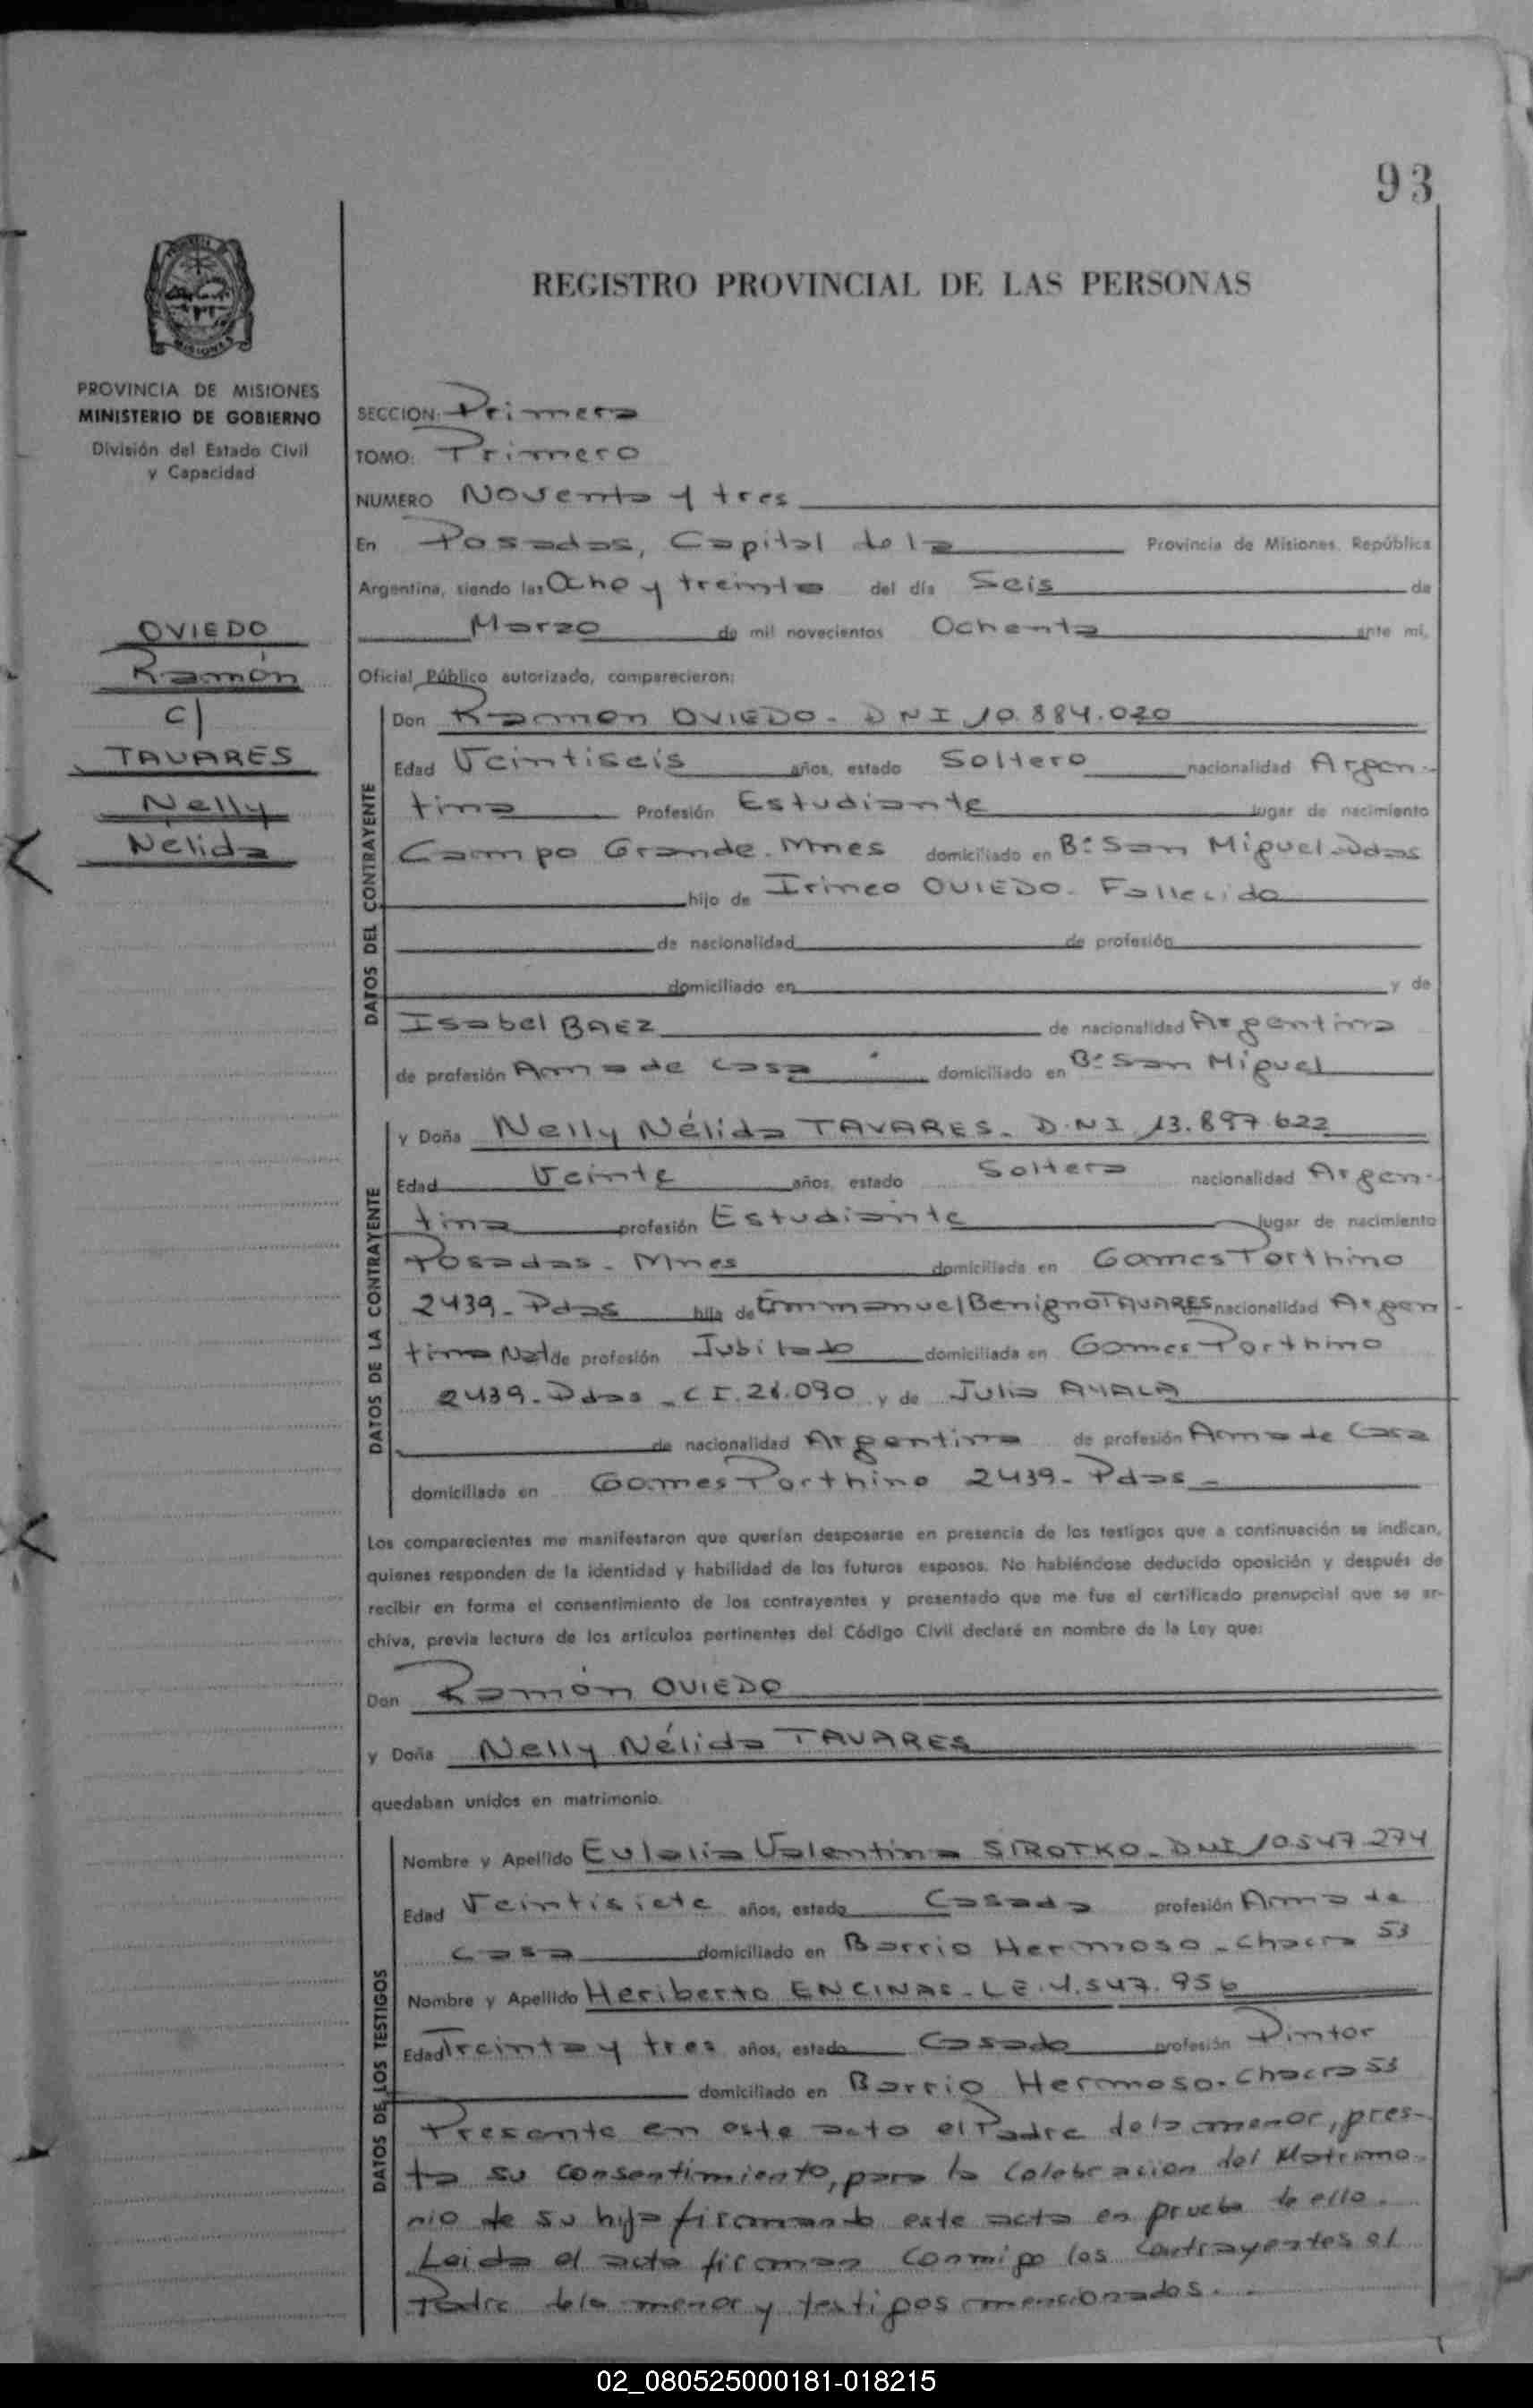 93
REGISTRO PROVINCIAL DE LAS PERSONAS
MISIONES
PROVINCIA DE MISIONES
MINISTERIO DE GOBIERNO
División del Estado Civil
y Capacidad
OVIEDO
Ramón
c/
TAVARES
Nelly
Nélida
SECCION: Primera
TOMO: Primero
NUMERO Noventa y tres
En Posadas, Capital de la Provincia de Misiones, República
Argentina, siendo las Ocho y treinta del día Seis de
Marzo de mil novecientos Ochenta ante mi,
Oficial Público autorizado, comparecieron:
DATOS DEL CONTRAYENTE
Don Ramon OVIEDO - DNI 10.884.020
Edad Veintiseis años, estado Soltero nacionalidad Argen-
tina Profesión Estudiante lugar de nacimiento
Campo Grande - Mnes domiciliado en Bº San Miguel - Pdas
hijo de Irineo OVIEDO - Fallecido
de nacionalidad de profesión
domiciliado en y de
Isabel BAEZ de nacionalidad Argentina
de profesión Ama de casa domiciliado en Bº San Miguel
DATOS DE LA CONTRAYENTE
y Doña Nelly Nélida TAVARES - D.N.I 13.897.622
Edad Veinte años, estado Soltera nacionalidad Argen-
tina profesión Estudiante lugar de nacimiento
Posadas - Mnes domiciliada en Gomes Porthino
2439 - Pdas hija de Emmanuel Benigno TAVARES de nacionalidad Argen-
tina Nat de profesión Jubilado domiciliada en Gomes Porthino
2439 - Pdas - C.I. 26.090 y de Julia AYALA
de nacionalidad Argentina de profesión Ama de Casa
domiciliada en Gomes Porthino 2439 - Pdas -
Los comparecientes me manifestaron que querían desposarse en presencia de los testigos que a continuación se indican,
quienes responden de la identidad y habilidad de los futuros esposos. No habiéndose deducido oposición y después de
recibir en forma el consentimiento de los contrayentes y presentado que me fue el certificado prenupcial que se ar-
chiva, previa lectura de los artículos pertinentes del Código Civil declaré en nombre de la Ley que:
Don Ramón OVIEDO
y Doña Nelly Nélida TAVARES
quedaban unidos en matrimonio.
DATOS DE LOS TESTIGOS
Nombre y Apellido Eulalia Valentina SIROTKO - DNI 10.547.274
Edad Veintisiete años, estado Casada profesión Ama de
casa domiciliado en Barrio Hermoso - Chacra 53
Nombre y Apellido Heriberto ENCINAS - L.E. 4.547.956
Edad Treinta y tres años, estado Casado profesión Pintor
domiciliado en Barrio Hermoso - Chacra 53
Presente en este acto el Padre de la menor, pres-
ta su consentimiento, para la Celebracion del Matrimo-
nio de su hija firmando este acta en prueba de ello.
Leida el acta firman Conmigo los Contrayentes el
Padre de la menor y testigos mencionados.
02_080525000181-018215